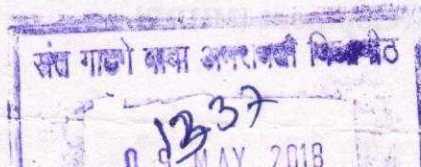 संत गाडगे बाबा अमरावती विद्यापीठ
1337
09 MAY 2018